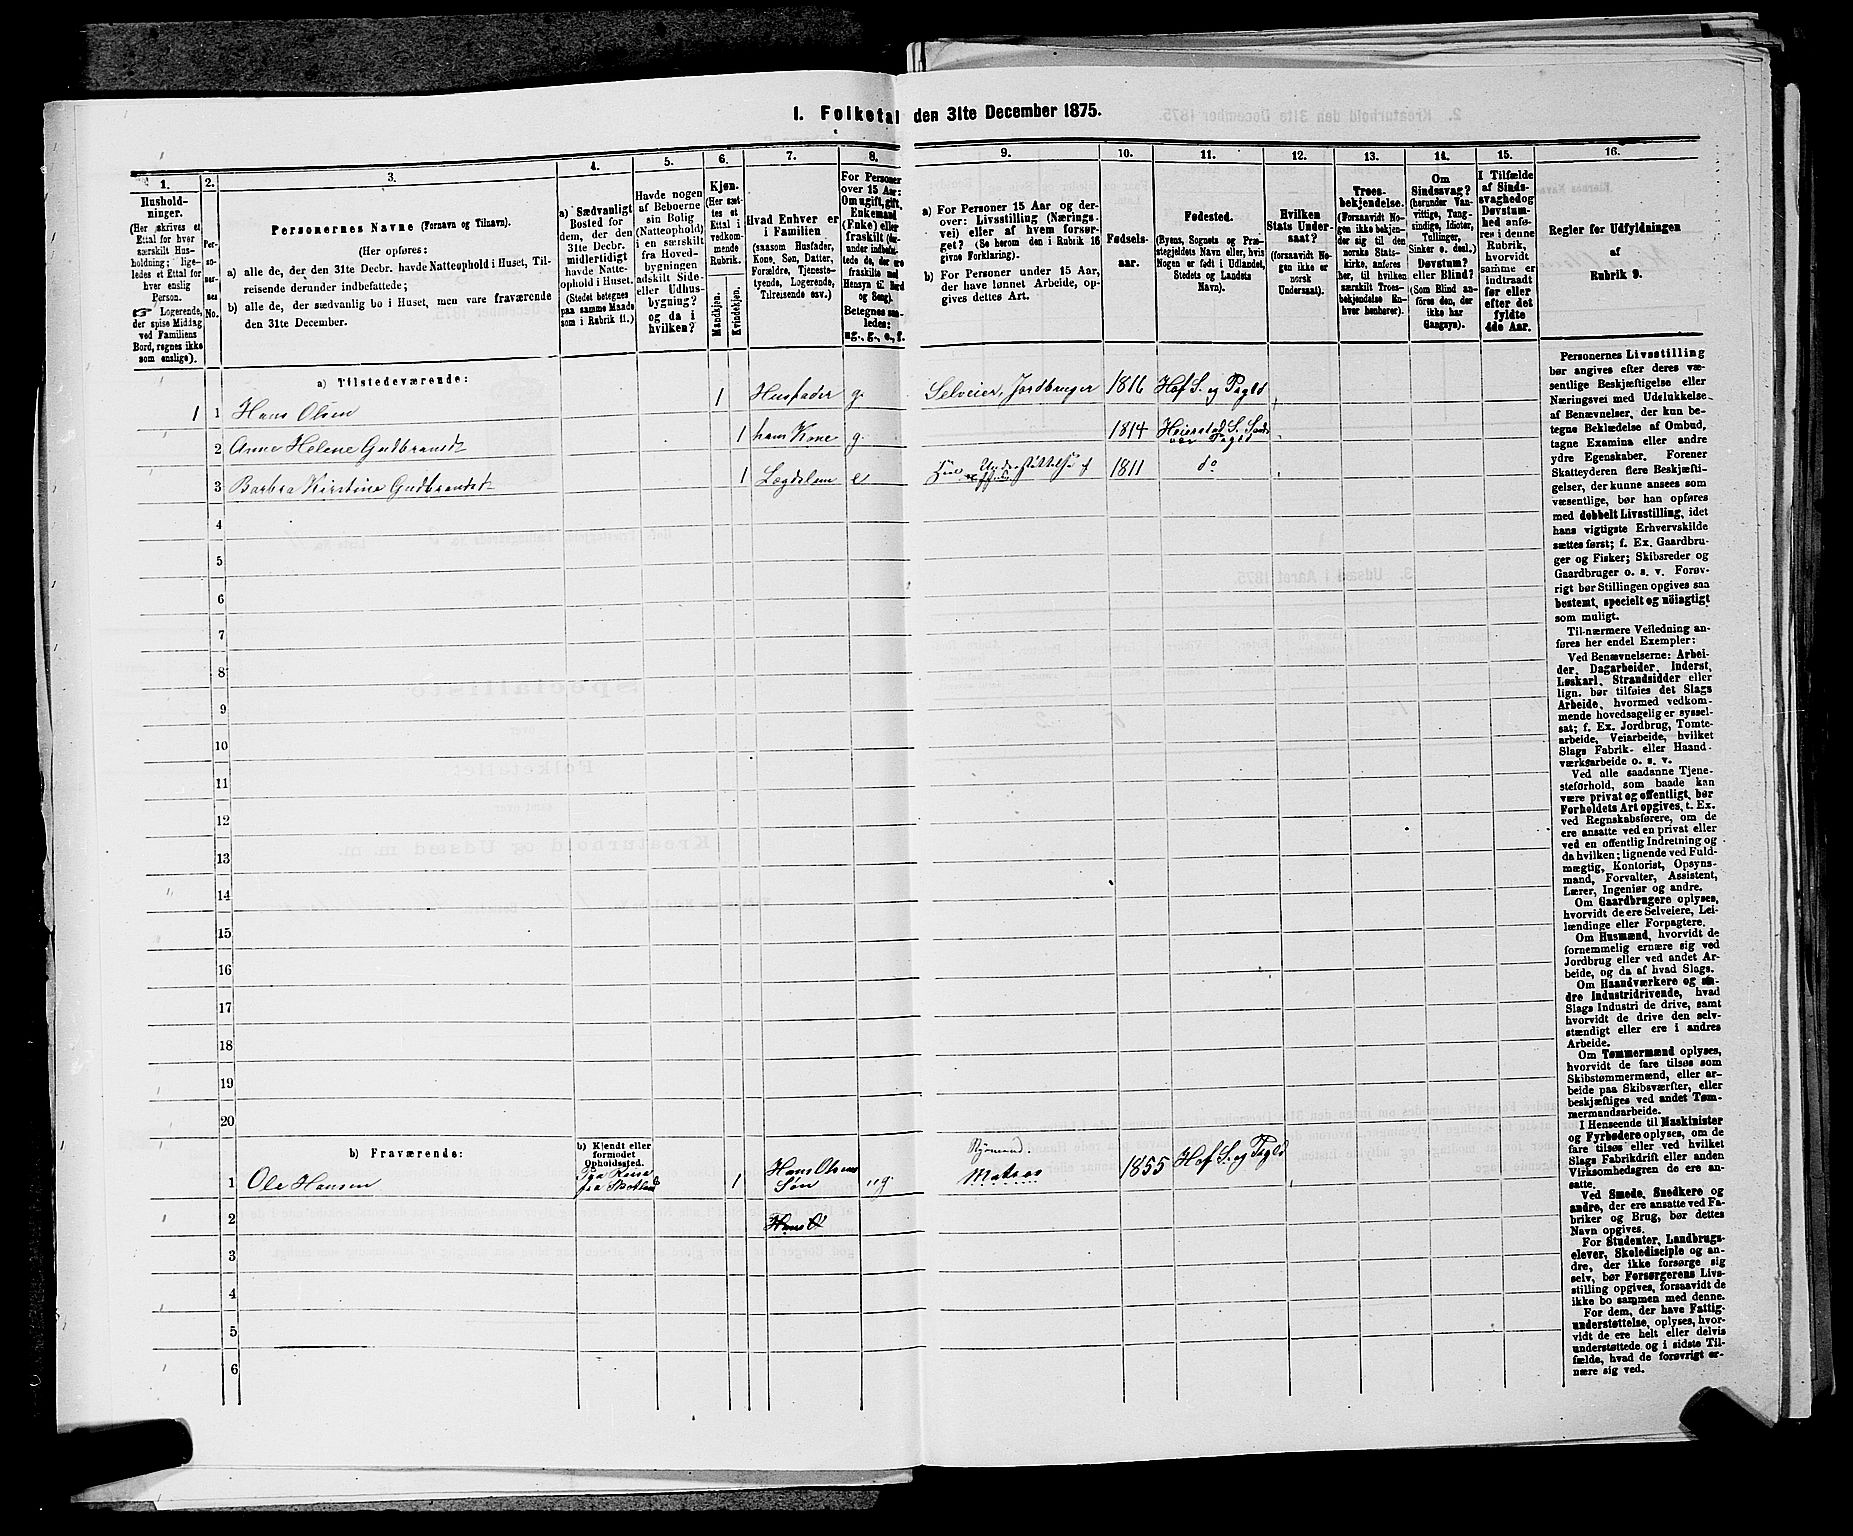 I. Folketal den 31te December 1875.
1.
Hushold-
ninger.
(Her skrives et
Ettal for hver
særskilt Hus-
holdning; lige-
ledes et Ettal for
hver enslig
Person.
☞ Logerende,
der spise Middag
ved Familiens
Bord, regnes ikke
som enslige).
2.
Per-
so-
ner-
nes
No.
3.
Personernes Navne (Fornavn og Tilnavn).
(Her opføres:
a) alle de, der den 31te Decbr. havde Natteophold i Huset, Til-
reisende derunder indbefattede;
b) alle de, der sædvanlig bo i Huset, men vare fraværende
den 31te December.
4.
a) Sædvanligt
Bosted for
dem, der den
31te Decbr.
midlertidigt
havde Natte-
ophold i Huset.
(Stedet betegnes
paa samme Maade
som i Rubrik 11.)
5.
Havde nogen
af Beboerne
sin Bolig
(Natteophold)
i en særskilt
fra Hoved-
bygningen
adskilt Side-
eller Udhus-
bygning?
og da i
hvilken?
6.
Kjøn.
(Her sæt-
tes et
Ettal i
vedkom-
mende
Rubrik.
Mandkjøn.
Kvindekjøn.
7.
Hvad Enhver er
i Familien
(saasom Husfader,
Kone, Søn, Datter,
Forældre, Tjeneste-
tyende, Logerende,
Tilreisende osv.)
8.
For Personer
over 15 Aar:
Om ugift, gift,
Enkemand
(Enke) eller
fraskilt
Betegnes saa-
ledes:
ug., g., e., f.
9.
a) For Personer 15 Aar og der-
over: Livsstilling (Nærings-
vei) eller af hvem forsør-
get? (Se herom den i Rubrik 16
givne Forklaring).
b) For Personer under 15 Aar,
der have lønnet Arbeide, op-
gives dettes Art.
10.
Fødsels-
aar.
11.
Fødested.
(Byens, Sognets og Præ-
stegjeldets Navn eller, hvis
Nogen er født i Udlandet,
Stedets og Landets
Navn).
12.
Hvilken
Stats Under-
saat?
(forsaavidt No-
gen ikke er
norsk
Undersaat).
13.
Troes-
bekjendelse.
(Forsaavidt No-
gen ikke bekjen-
der sig til den
norske Stats-
kirke, anføres
her, til hvilken
særskilt Troes-
bekjendelse En-
hver henhører).
14.
Om
Sindssvag?
(herunder Van-
vittige, Tung-
sindige, Idioter,
Tullinger,
Sinker o. desl.)
Døvstum?
eller Blind?
(Som Blind an-
føres den, der
ikke har
Gangsyn).
15.
I Tilfælde
af Sinds-
svaghed og
Døvstum-
hed anfø-
res i denne
Rubrik,
hvorvidt
samme er
indtraadt
før eller
efter det
fyldte
4de Aar.
16.
Regler for Udfyldningen
af
Rubrik 9.
a) Tilstedeværende:
1 1 Hans Olsen 1 Husfader g. Selveier, Jordbruger 1816 Hof S. og Pgld
2 Anne Helene Gudbrandsd. 1 hans Kone g. 1814 Heierstad S. Sand
Pgld
3 Barbra Kirstine Gudbrandsd. 1 Lægdslem e Understøttelse af 1811 do
4
5
6
7
8
9
10
11
12
13
14
15
16
17
18
19
20
b) Fraværende:
b) Kjendt eller
formodet
Opholdssted.
1 Ole Hansen Paa Reise
fra Skotland 1 Hans Olsens
Søn ug. Matros 1855 Hof S. og Pgld
2 Hans O
3
4
5
6
Personernes Livsstilling
bør angives efter deres væ-
sentlige Beskjæftigelse eller
Næringsvei med Udelukkelse
af Benævnelser, der kun be-
tegne Beklædelse af Ombud,
tagne Examina eller andre
ydre Egenskaber. Forener
Skatteyderen flere Beskjæfti-
gelser, der kunne ansees som
væsentlige, bør han opføres
med dobbelt Livsstilling, idet
hans vigtigste Erhvervskilde
sættes først; f. Ex. Gaardbru-
ger og Fisker; Skibsreder og
Gaardbruger o. s. v. Forøv-
rigt bør Stillingen opgives saa
bestemt, specielt og nöiagtigt
som muligt.
Til nærmere Veiledning an-
føres her endel Exempler:
Ved Benævnelserne: Arbei-
der, Dagarbeider, Inderst,
Løskarl, Strandsidder eller
lign. bør tilføies det Slags
Arbeide, hvormed vedkom-
mende hovedsagelig er syssel-
sat; f. Ex. Jordbrug, Tomte-
arbeide, Veiarbeide, hvilket
Slags Fabrik- eller Haand-
værksarbeide o. s. v.
Ved alle saadanne Tjene-
steforhold, som baade kan
være privat og offentligt, bør
Forholdets Art opgives, t. Ex.
ved Regnskabsførere, om de
ere ansatte ved en privat eller
ved en offentlig Indretning og
da hvilken; lignende ved Fuld-
mægtig, Kontorist, Opsyns-
mand, Forvalter, Assistent,
Lærer, Ingeniør og andre.
Om Gaardbrugere oplyses,
hvorvidt de ere Selveiere, Lei-
lændinge eller Forpagtere.
Om Husmænd, hvorvidt de
fornemmelig ernære sig ved
Jordbrug eller ved andet Ar-
beide, og da af hvad Slags.
Om Haandværkere og an-
dre Industridrivende, hvad
Slags Industri de drive, samt
hvorvidt de drive den selv-
stændigt eller ere i andres
Arbeide.
Om Tømmermænd oplyses,
hvorvidt de fare tilsøs som
Skibstømmermænd, eller ar-
beide paa Skibsværfter, eller
beskjæftiges ved andet Tøm-
mermandsarbeide.
I Henseende til Maskinister
og Fyrbødere oplyses, om de
fare tilsøs eller ved hvilket
Slags Fabrikdrift eller anden
Virksomhedsgren de ere an-
satte.
Ved Smede, Snedkere og
andre, der ere ansatte ved Fa-
briker og Brug, bør dettes
Navn opgives.
For Studenter, Landbrugs-
elever, Skoledisciple og an-
dre, der ikke forsørge sig
selv, bør Forsørgerens Livs-
stilling opgives, forsaavidt de
ikke bo sammen med denne.
For dem, der have Fattig-
understøttelse, oplyses, hvor-
vidt de ere helt eller delvis
understøttede og i sidste Til-
fælde, hvad de forøvrigt er-
nære sig ved.